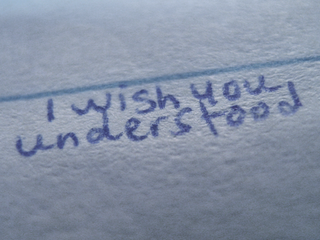 I wish you
understood